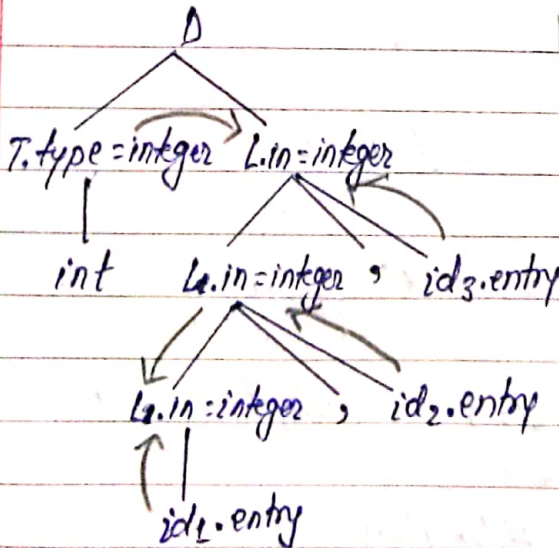 D
T.type=integer L.in=integer
int L1.in=integer , id3.entry
L1.in=integer , id2.entry
id1.entry